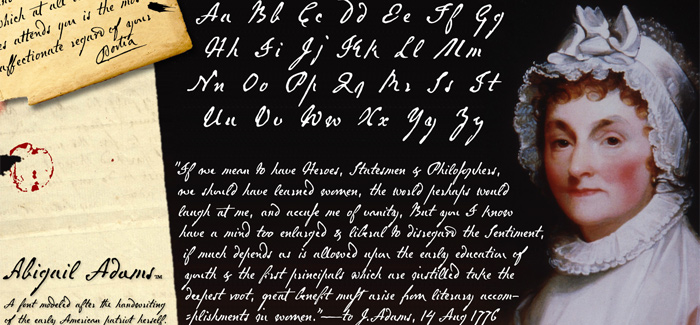 which at all
es attends you is the mos
affectionate regard of your
Portia
Aa Bb Cc Dd Ee Ff Gg
Hh Ii Jj Kk Ll Mm
Nn Oo Pp Qq Rr Ss Tt
Uu Vv Ww Xx Yy Zz
"If we mean to have Heroes, Statesmen & Philosophers,
we should have learned women, the world perhaps would
laugh at me, and accuse me of vanity, But you I know
have a mind too enlarged & liberal to disregard the Sentiment,
if much depends as is allowed upon the early education of
youth & the first principals which are instilled take the
deepest root, great benefit must arise from literary accom-
=plishments in women."—to J.Adams, 14 Aug 1776
Abigail Adams™
A font modeled after the handwriting
of the early American patriot herself.